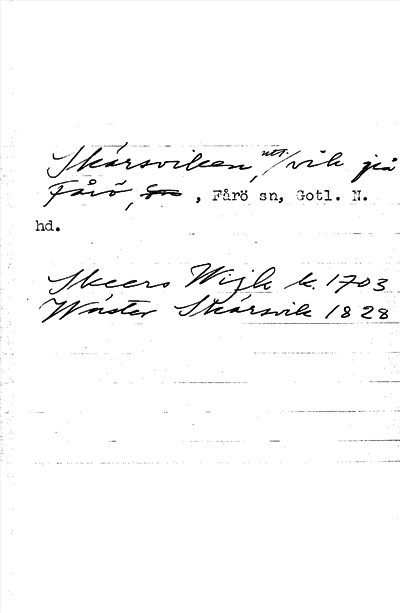 Skärsviken, utt./vik på
Fårö, , Fårö sn, Gotl. N.
hd.
Skeers Wigh k. 1703
Wäster Skärsvik 1828